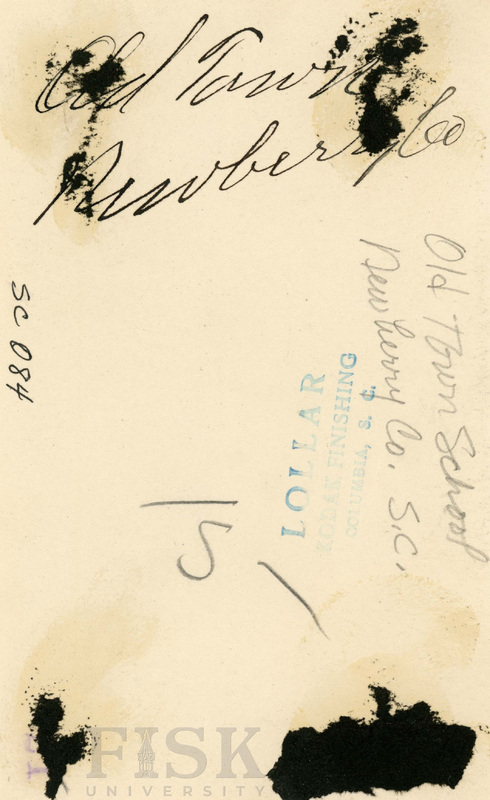 Old Town
Newberry Co
Old Town School
Newberry Co. S.C.
SC 084
LOLLAR
KODAK FINISHING
COLUMBIA, S. C.
15
FISK
UNIVERSITY